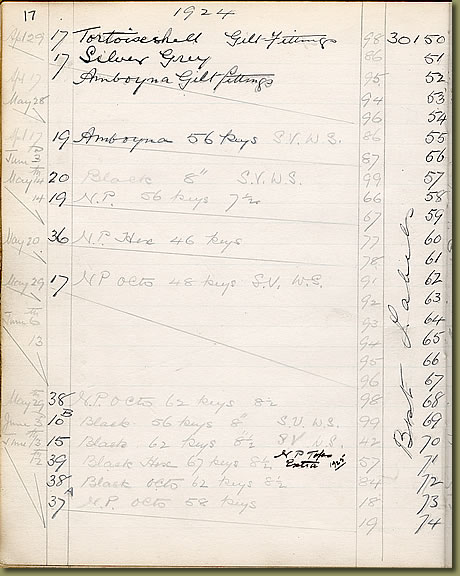 17 1924
Apl 29 17 Tortoiseshell Gilt Fittings 98 30150
17 Silver Grey 86 51
Apl 17 Amboyna Gilt fittings 95 52
May 28 94 53
96 54
Apl 17 19 Amboyna 56 keys S.V. W.S. 86 55
June 3 87 56
May 14 20 Black 8" S.V. W.S. 99 57
14 19 N.P. 56 keys 7½ 66 58
67 59
May 20 36 N.P. Hex 46 keys 77 60
78 61
May 29 17 NP Octo 48 keys S.V. W.S. 91 62
92 63
June 6 93 64
13 94 65
95 66
96 67
May 38 N.P. Octo 62 keys 8½ 98 68
June 3 10B Black 56 keys 8" S.V. W.S. 99 69
June 13 15 Black 62 keys 8½ SV W.S. 42 70
12 39 Black Hex 67 keys 8½ N.P Tops Extra 57 71
38 Black Octo 62 keys 8½ 84 72
37 N.P. Octo 58 keys 18 73
19 74
Best Labels